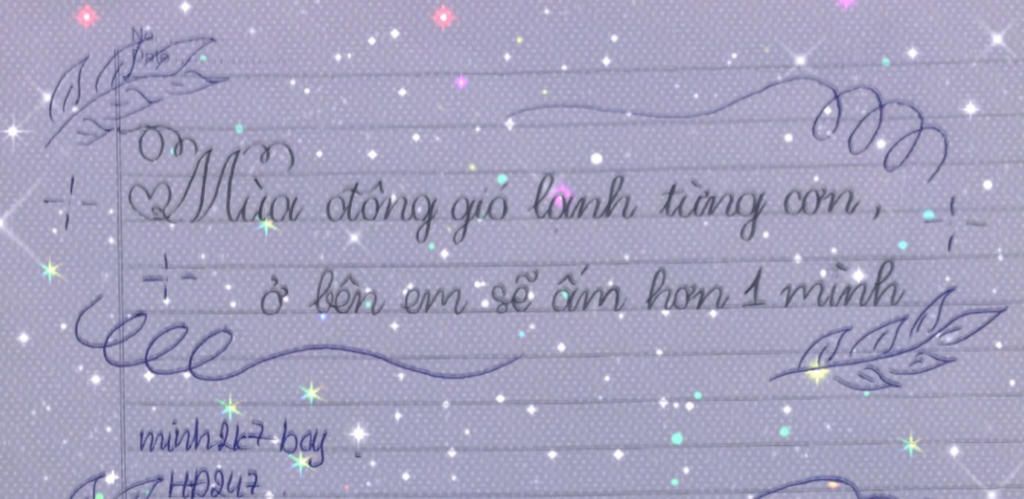 No
Date
Mùa đông gió lạnh từng cơn,
ở bên em sẽ ấm hơn 1 mình
minh2k7 boy
HĐ247